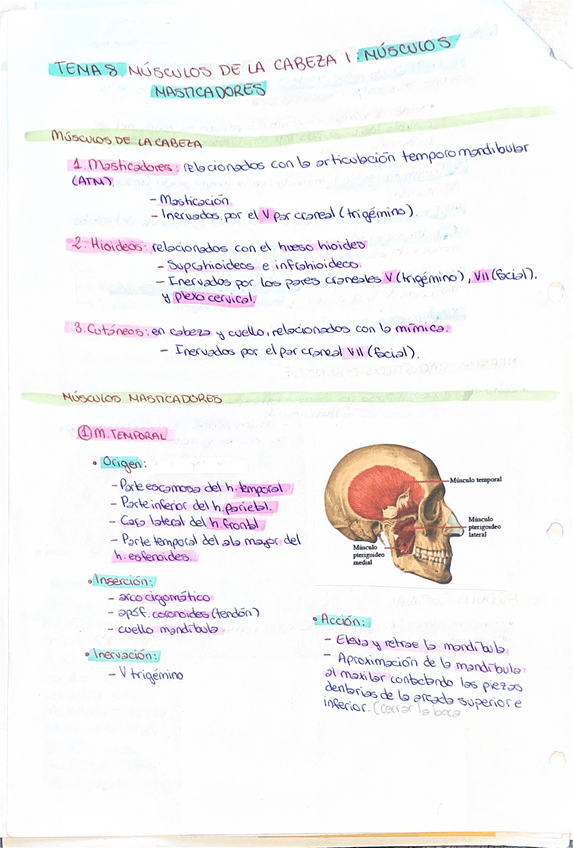 TEMA 8 MÚSCULOS DE LA CABEZA I: MÚSCULOS
MASTICADORES
MÚSCULOS DE LA CABEZA
1. Masticadores: relacionados con la articulación temporomandibular
(ATM).
- Masticación.
- Inervados por el V par craneal (trigémino).
2. Hioideos: relacionados con el hueso hioides
- Suprahioideos e infrahioideos.
- Inervados por los pares craneales V (trigémino), VII (facial).
y plexo cervical.
3. Cutáneos: en cabeza y cuello, relacionados con la mímica.
- Inervados por el par craneal VII (facial).
MÚSCULOS MASTICADORES
① M. TEMPORAL
• Origen:
- Parte escamosa del h. temporal.
- Parte inferior del h. parietal.
- Cara lateral del h. frontal
- Parte temporal del ala mayor del
h. esfenoides.
• Inserción:
- arco cigomático
- apóf. coronoides (tendón)
- cuello mandíbula
• Inervación:
- V trigémino
Músculo temporal
Músculo
pterigoideo
lateral
Músculo
pterigoideo
medial
• Acción:
- Eleva y retrae la mandíbula.
- Aproximación de la mandíbula
al maxilar contactando las piezas
dentarias de la arcada superior e
inferior. (cerrar la boca